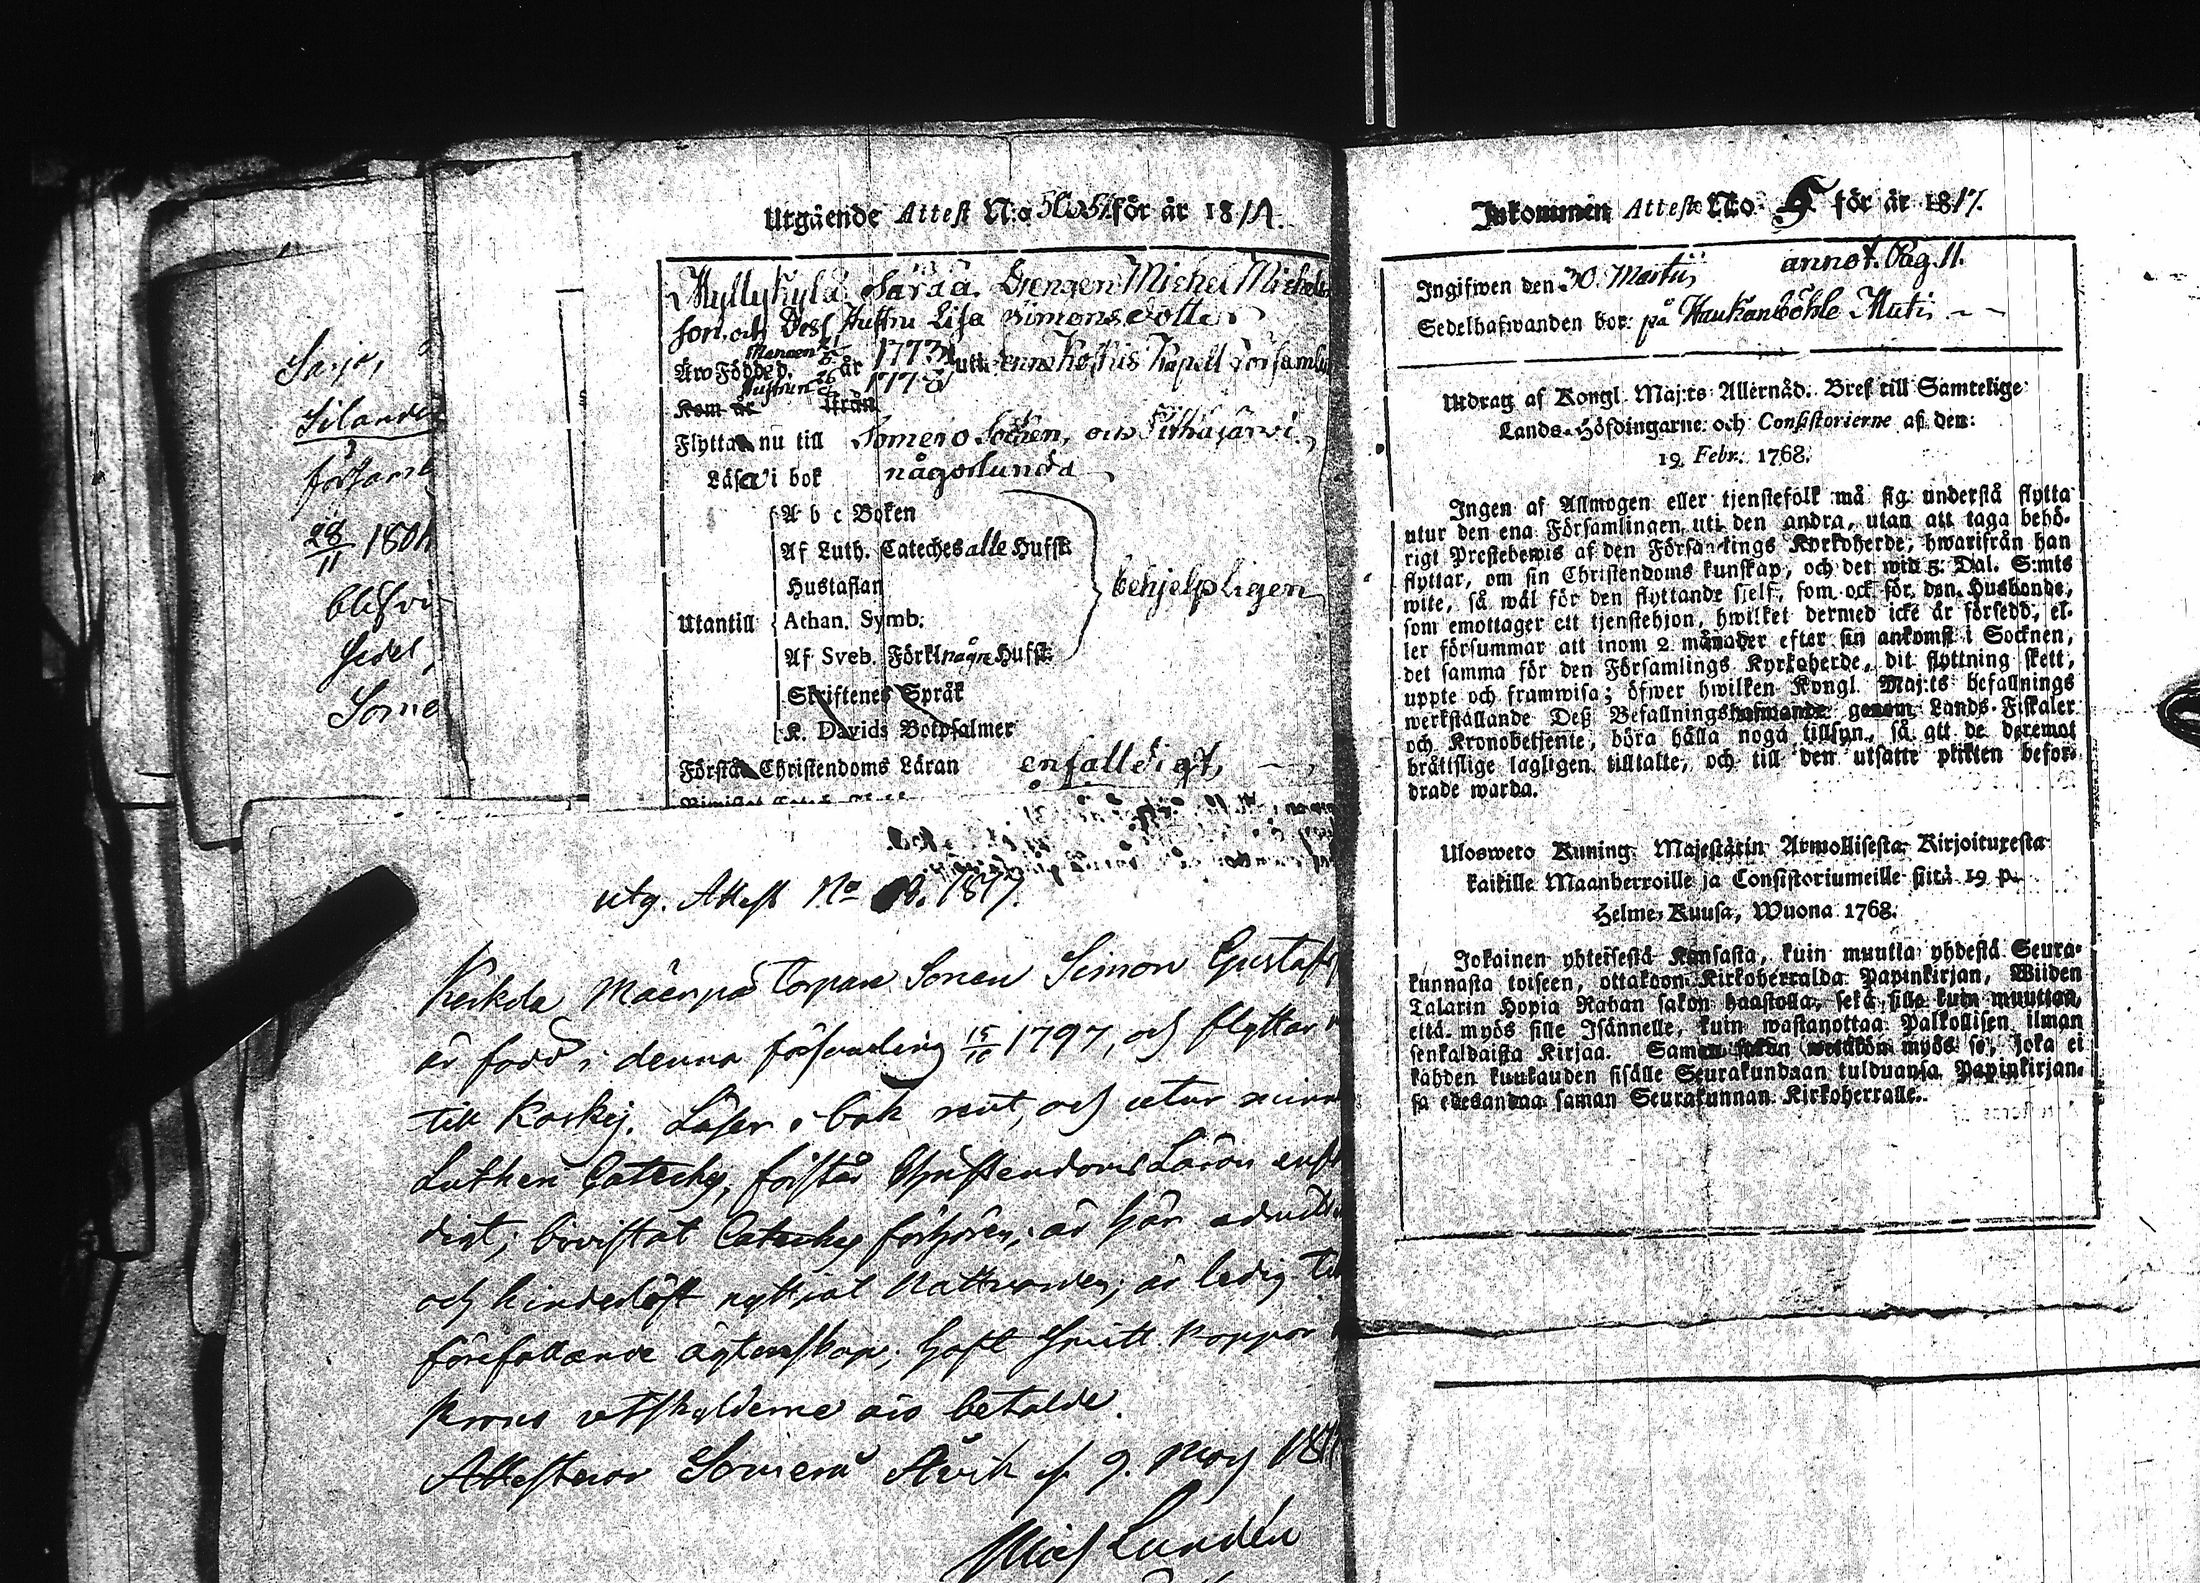 Sarja,
Silander
församl
28/11 180
blifvi
Sedel,
Some
Utgående Attest N:o 50 o 51 för år 1817.
Myllykylä Särää Drengen Michel Michels
son, och Dess Hustru Lisa Simonsdotter
Äro Födde d. Mannen år 1773 uti Koskis Kapell Församl
Hustrun 26 1778
Kom år ifrån
Flytta nu till Somero Socken, och Pitkäjärvi.
Läsa i bok någorlunda
A b c Boken
Af Luth. Cateches alle Hufst.
Hustaflan
Utantill Athan. Symb. behjelpligen
Af Sveb. Förkl. några Hufst.
Skriftenes Språk
K. Davids Botpsalmer
Förstå Christendoms Läran enfalldigt,
utg. Attest No 1817.
Kerkola Mäenpää Torpare Sonen Simon Gustafs
är född i denna församling 15/10 1797, och flyttar n
till Koskij. Läser i bok rent, och utur minn
Lutheri Catechs, förstår Christendoms Läran enfa
digt; bevistat Catechs förhören; är här admitt
och hinderlöst nyttjat Nattvarden; är ledig till
förefallande ägtenskap; haft Smitt Koppor
Krono utskylderne äro betalde.
Attesterar Somero Åvik d 9. Maij 181
Mich Lundén
Inkommen Attest No. 5 för år 1817.
Ingifwen den 30. Martii annot. Pag. 11.
Sedelhafwanden bor: på Haukanböhle Muti
Utdrag af Kongl. Maj:ts Allernåd. Bref till Samtelige
Lands-Höfdingarne och Consistorierne af den:
19. Febr. 1768.
Ingen af Allmogen eller tjenstefolk må sig understå flytta
utur den ena Församlingen uti den andra, utan att taga behö-
rigt Prestebewis af den Församlings Kyrkoherde, hwarifrån han
flyttar, om sin Christendoms kunskap, och det wid 5. Dal. S:mts
wite, så wäl för den flyttande sjelf, som ock för den Husbonde,
som emottager ett tjenstehjon, hwilket dermed icke är försedd, el-
ler försummar att inom 2 månader efter sin ankomst i Socknen,
det samma för den Församlings Kyrkoherde, dit flyttning skett,
uppte och framwisa; öfwer hwilken Kongl. Maj:ts befallnings
werkställande Deß Befallningshafwande genom Lands-Fiskaler
och Kronobetjente, böra hålla noga tillsyn, så att de deremot
bråttslige lagligen tilltalte, och till den utsatte plikten befor-
drade warda.
Ulosweto Kuning. Majestätin Armollisesta Kirjoituxesta
kaikille Maanherroille ja Consistoriumeille siitä 19 p.
Helme-Kuusa, Wuona 1768.
Jokainen yhteisestä Kansasta, kuin muutta yhdestä Seura-
kunnasta toiseen, ottakoon Kirkoherralda Papinkirjan, Wiiden
Talarin Hopia Rahan sakon haastolla, sekä sille kuin muuttaa,
että myös sille Isännelle, kuin wastanottaa Palkollisen ilman
senkaldaista Kirjaa. Saman sakon wetäköön myös se, joka ei
kahden kuukauden sisälle Seurakundaan tulduansa Papinkirjan-
sa edesandaa saman Seurakunnan Kirkoherralle.